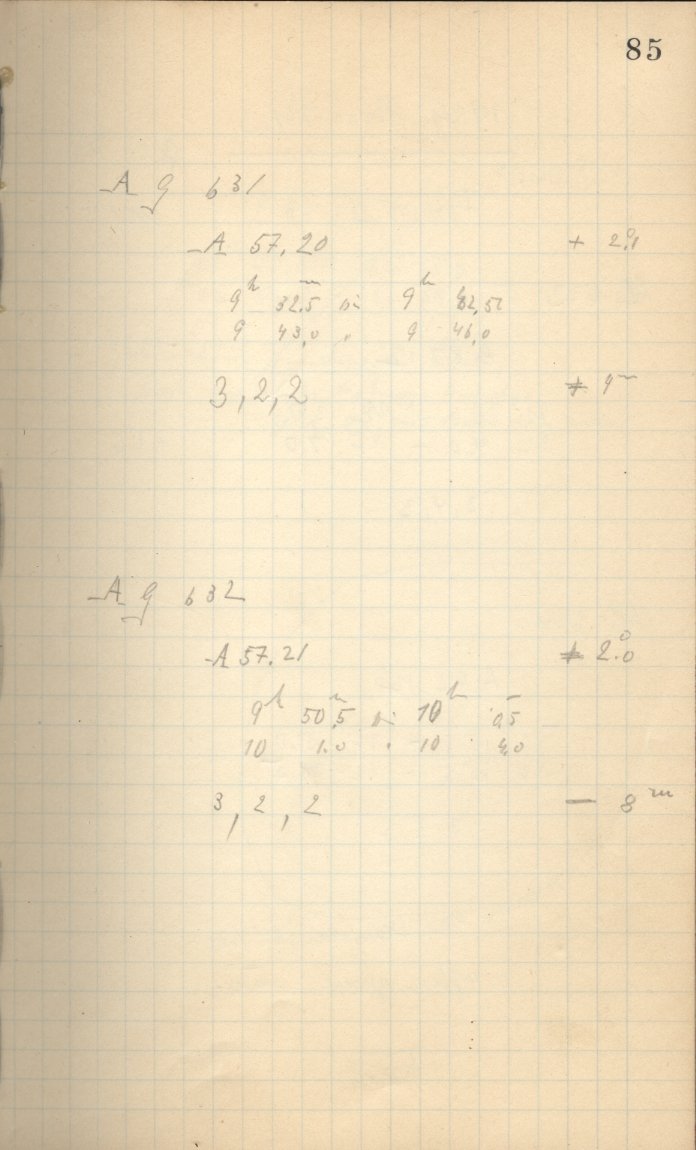 85
A G 631
A 57.20 + 2°.1
9h 32.5m bis 9h 42,5
9 43,0 " 9 46,0
3, 2, 2 + 4m
A G 632
A 57.21 + 2°.0
9h 50m,5 bis 10h 0,5
10 1.0 " 10 4,0
3, 2, 2 — 8m